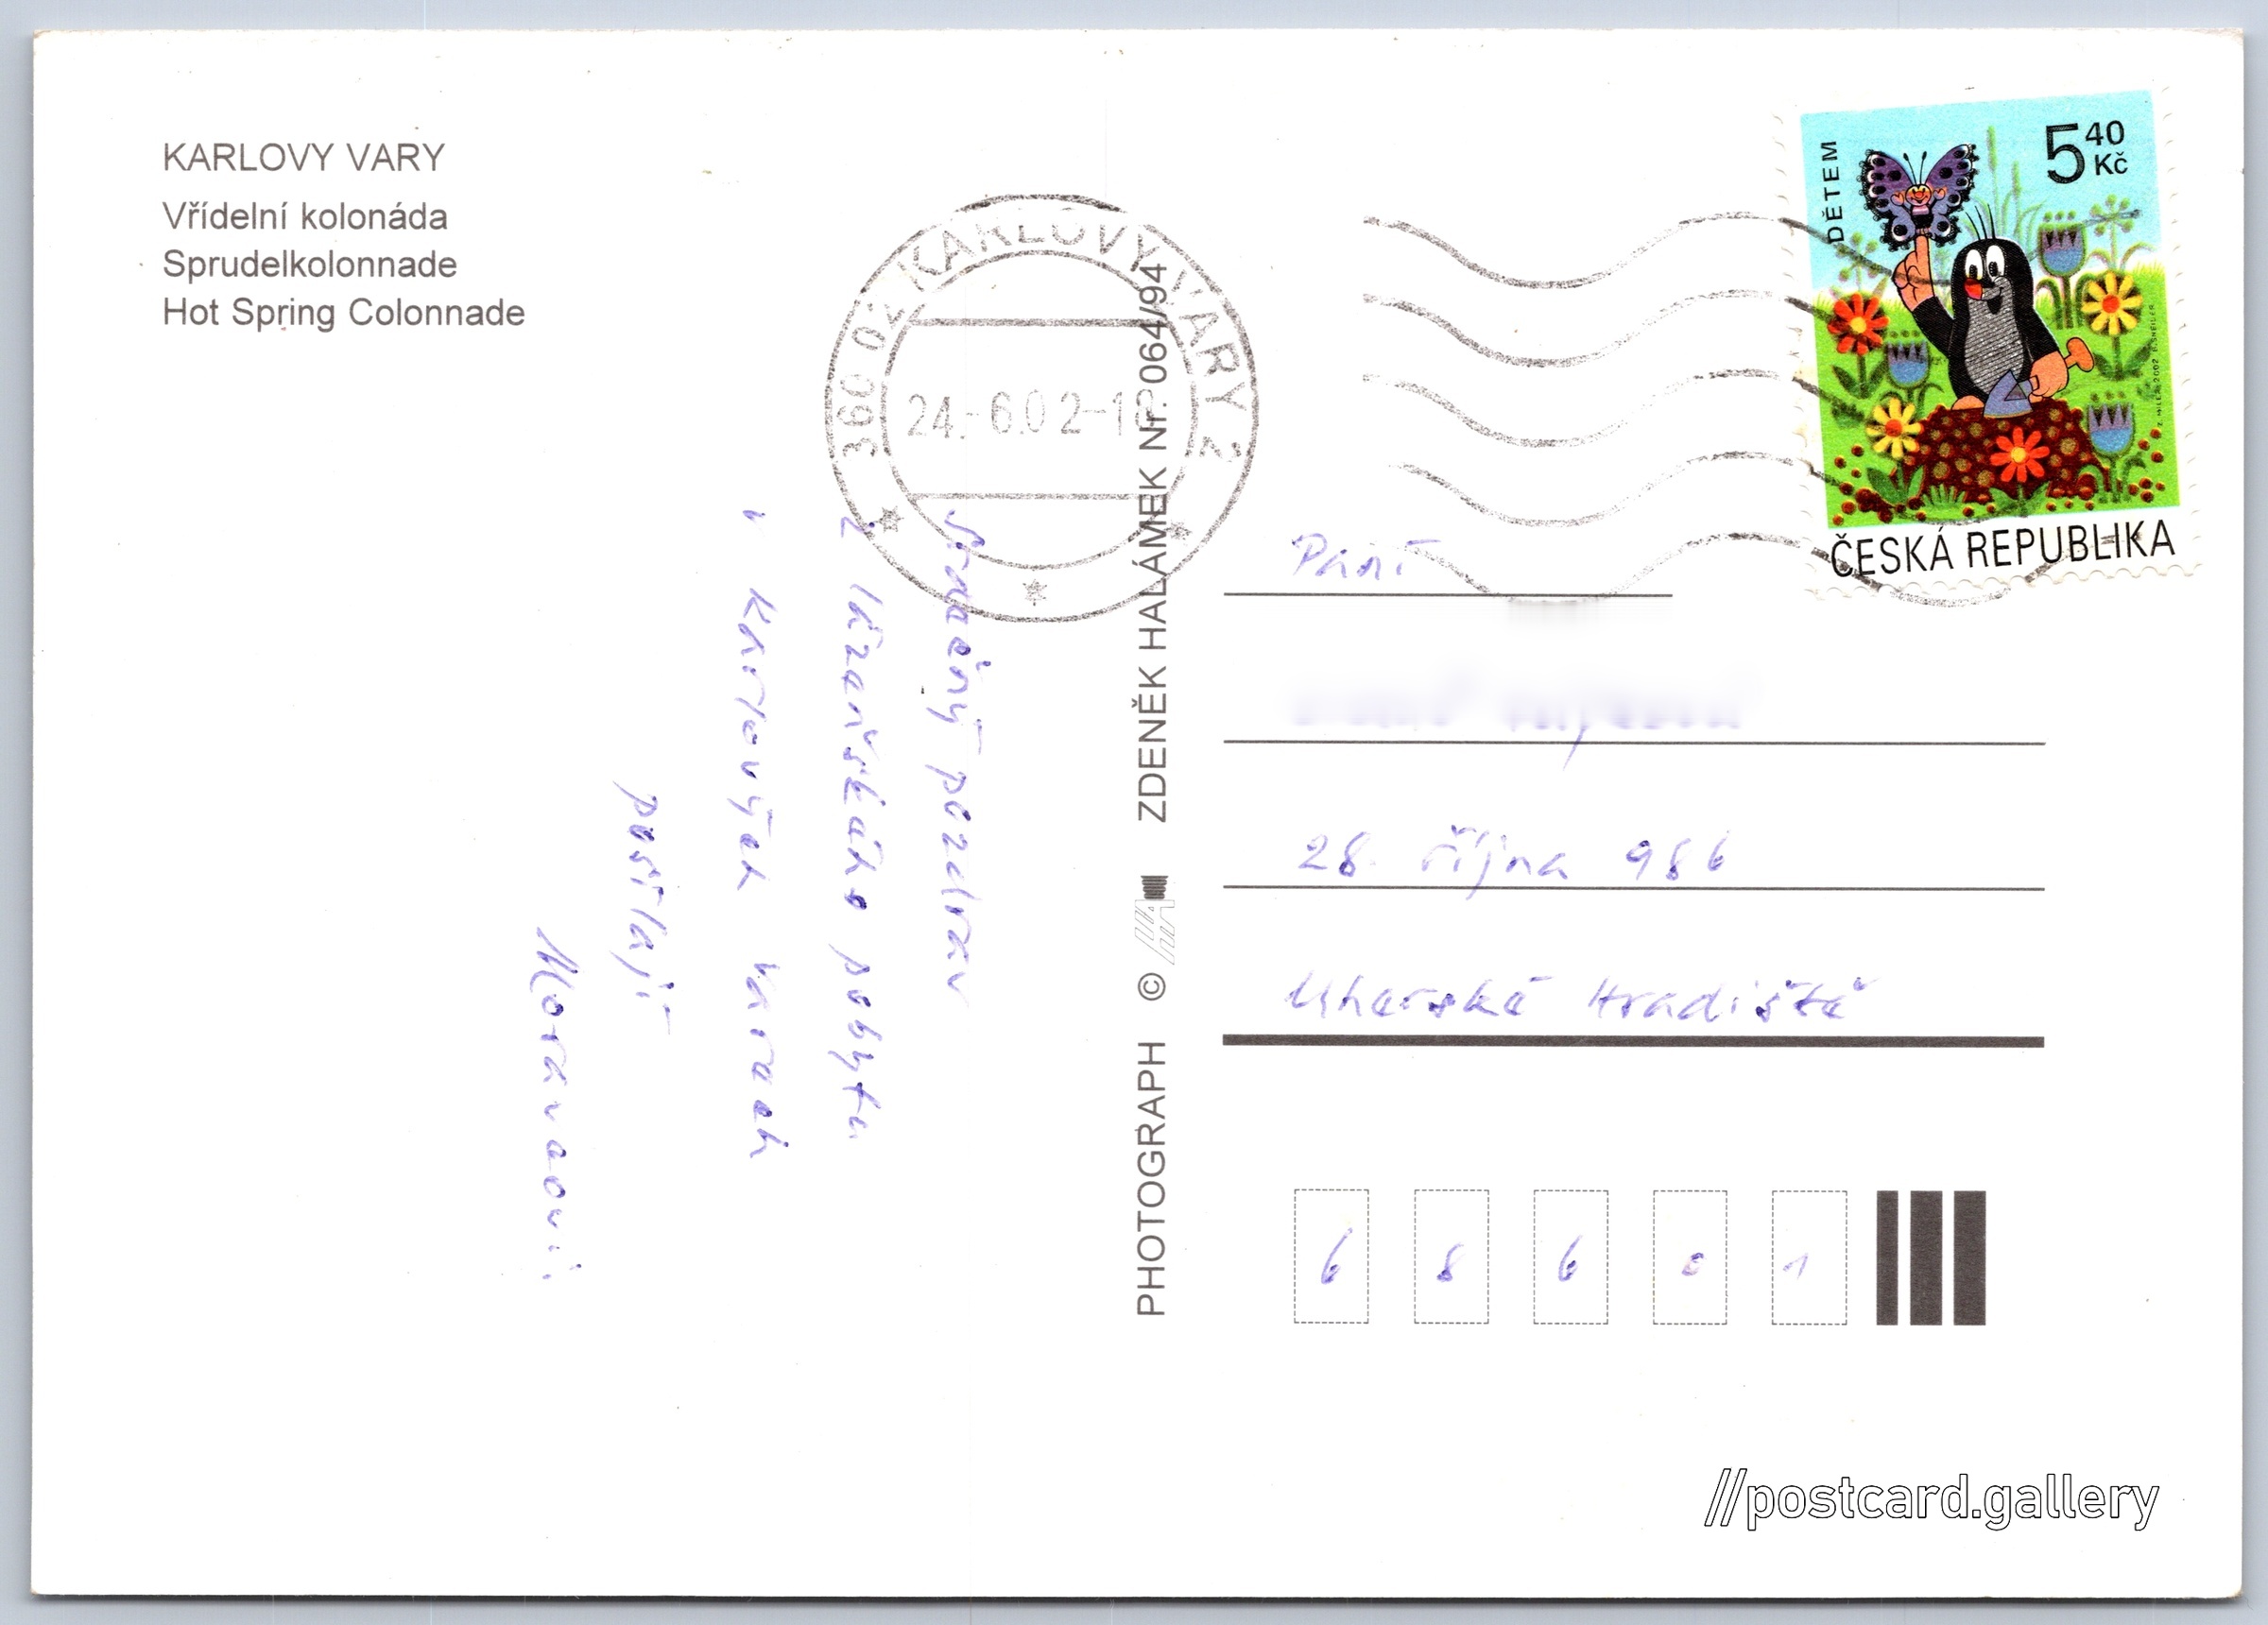 KARLOVY VARY
Vřídelní kolonáda
Sprudelkolonnade
Hot Spring Colonnade
360 02 KARLOVY VARY 2
24.-6.02-1
Srdečný pozdrav
z lázeňského pobytu
v Karlových Varech
posílají
Moravcovi
PHOTOGRAPH © ZDENĚK HALÁMEK Nr. 064/94
DĚTEM
5 40 Kč
ČESKÁ REPUBLIKA
Paní
28. října 986
Uherské Hradiště
6 8 6 0 1
//postcard.gallery